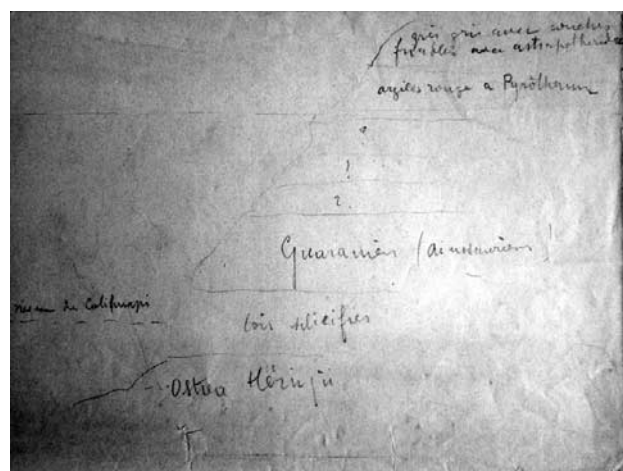 grès gris avec couches
friables avec astrapotherium
argiles rouge a Pyrotherium
?
?
?
Guaranien (dinosauriens)
niveau du Coli Huapi
bois silicifiés
Ostrea